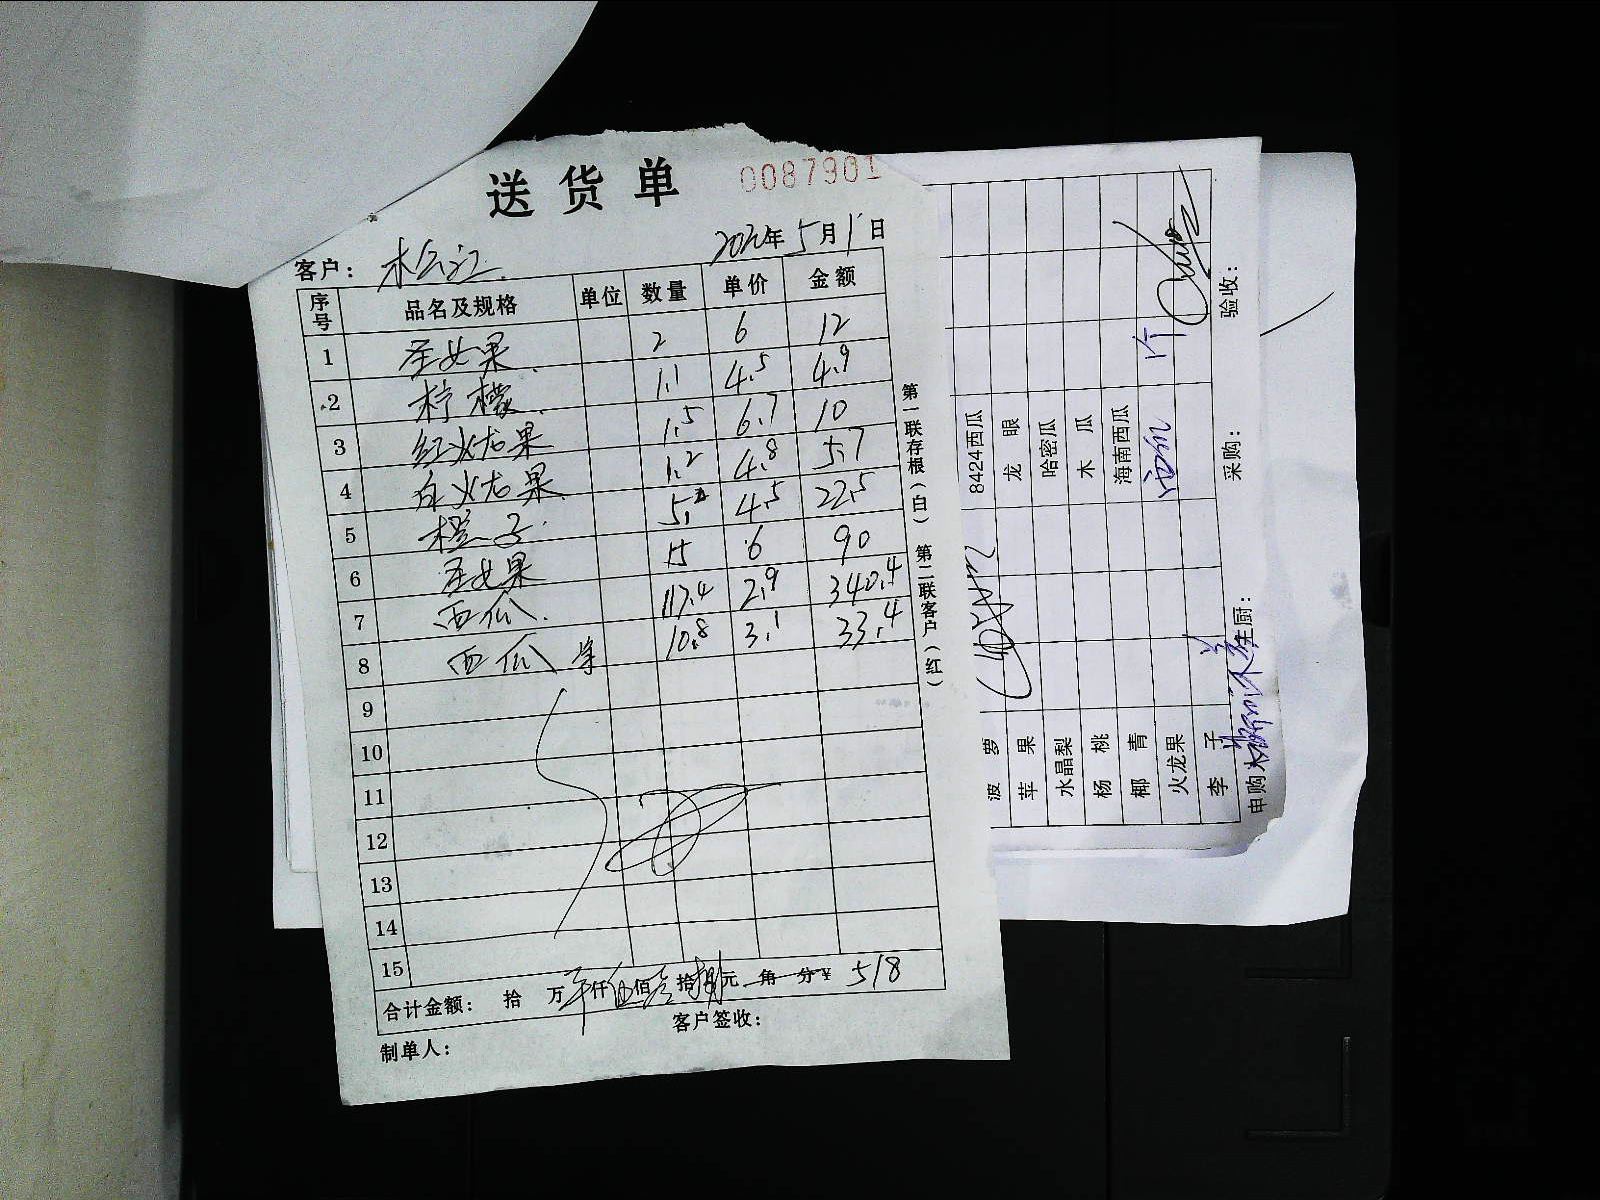 送货单 0087901
客户： 年5月1日
序号 品名及规格 单位 数量 单价 金额
1 圣女果 2 6 12
2 柠檬 1.1 4.5 4.9
3 红火龙果 1.5 6.7 10
4 白火龙果 1.2 4.8 5.7
5 橙子 5. 4.5 22.5
6 圣女果 15 6 90
7 西瓜 117.4 2.9 340.4
8 西瓜 10.8 3.1 33.4
9
10
11
12
13
14
15
合计金额： 拾 万 仟伍佰 拾捌元 角 分¥ 518
制单人： 客户签收：
第一联存根（白） 第二联客户（红）
波萝 8424西瓜
苹果 龙眼
水晶梨 哈密瓜
杨桃 木瓜
椰青 海南西瓜
火龙果
李子
申购 厨： 采购： 验收：